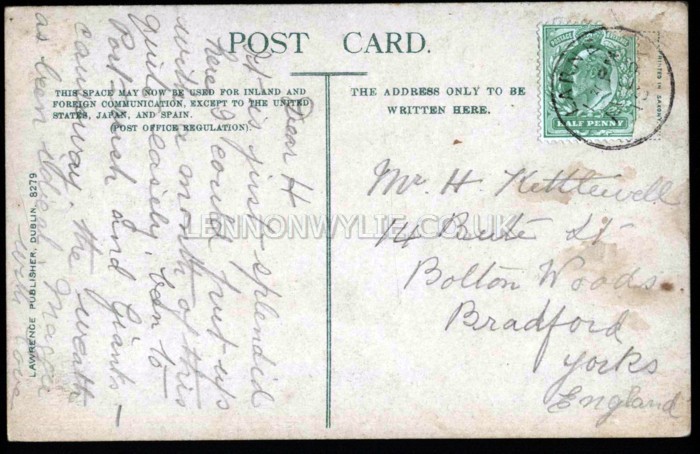 POST CARD.
THIS SPACE MAY NOW BE USED FOR INLAND AND
FOREIGN COMMUNICATION, EXCEPT TO THE UNITED
STATES, JAPAN, AND SPAIN.
(POST OFFICE REGULATION).
THE ADDRESS ONLY TO BE
WRITTEN HERE.
HALF PENNY
Dear H
It is just splendid
here I could put up
with a month of this
quite easily, ben to
Port rush and Giants
causeway. the weath
as been ideal. Maggie
with love
Mr. H. Kettlewell
14 Bute St
Bolton Woods
Bradford
Yorks
England
LAWRENCE PUBLISHER, DUBLIN. 8279
LENNONWYLIE.CO.UK